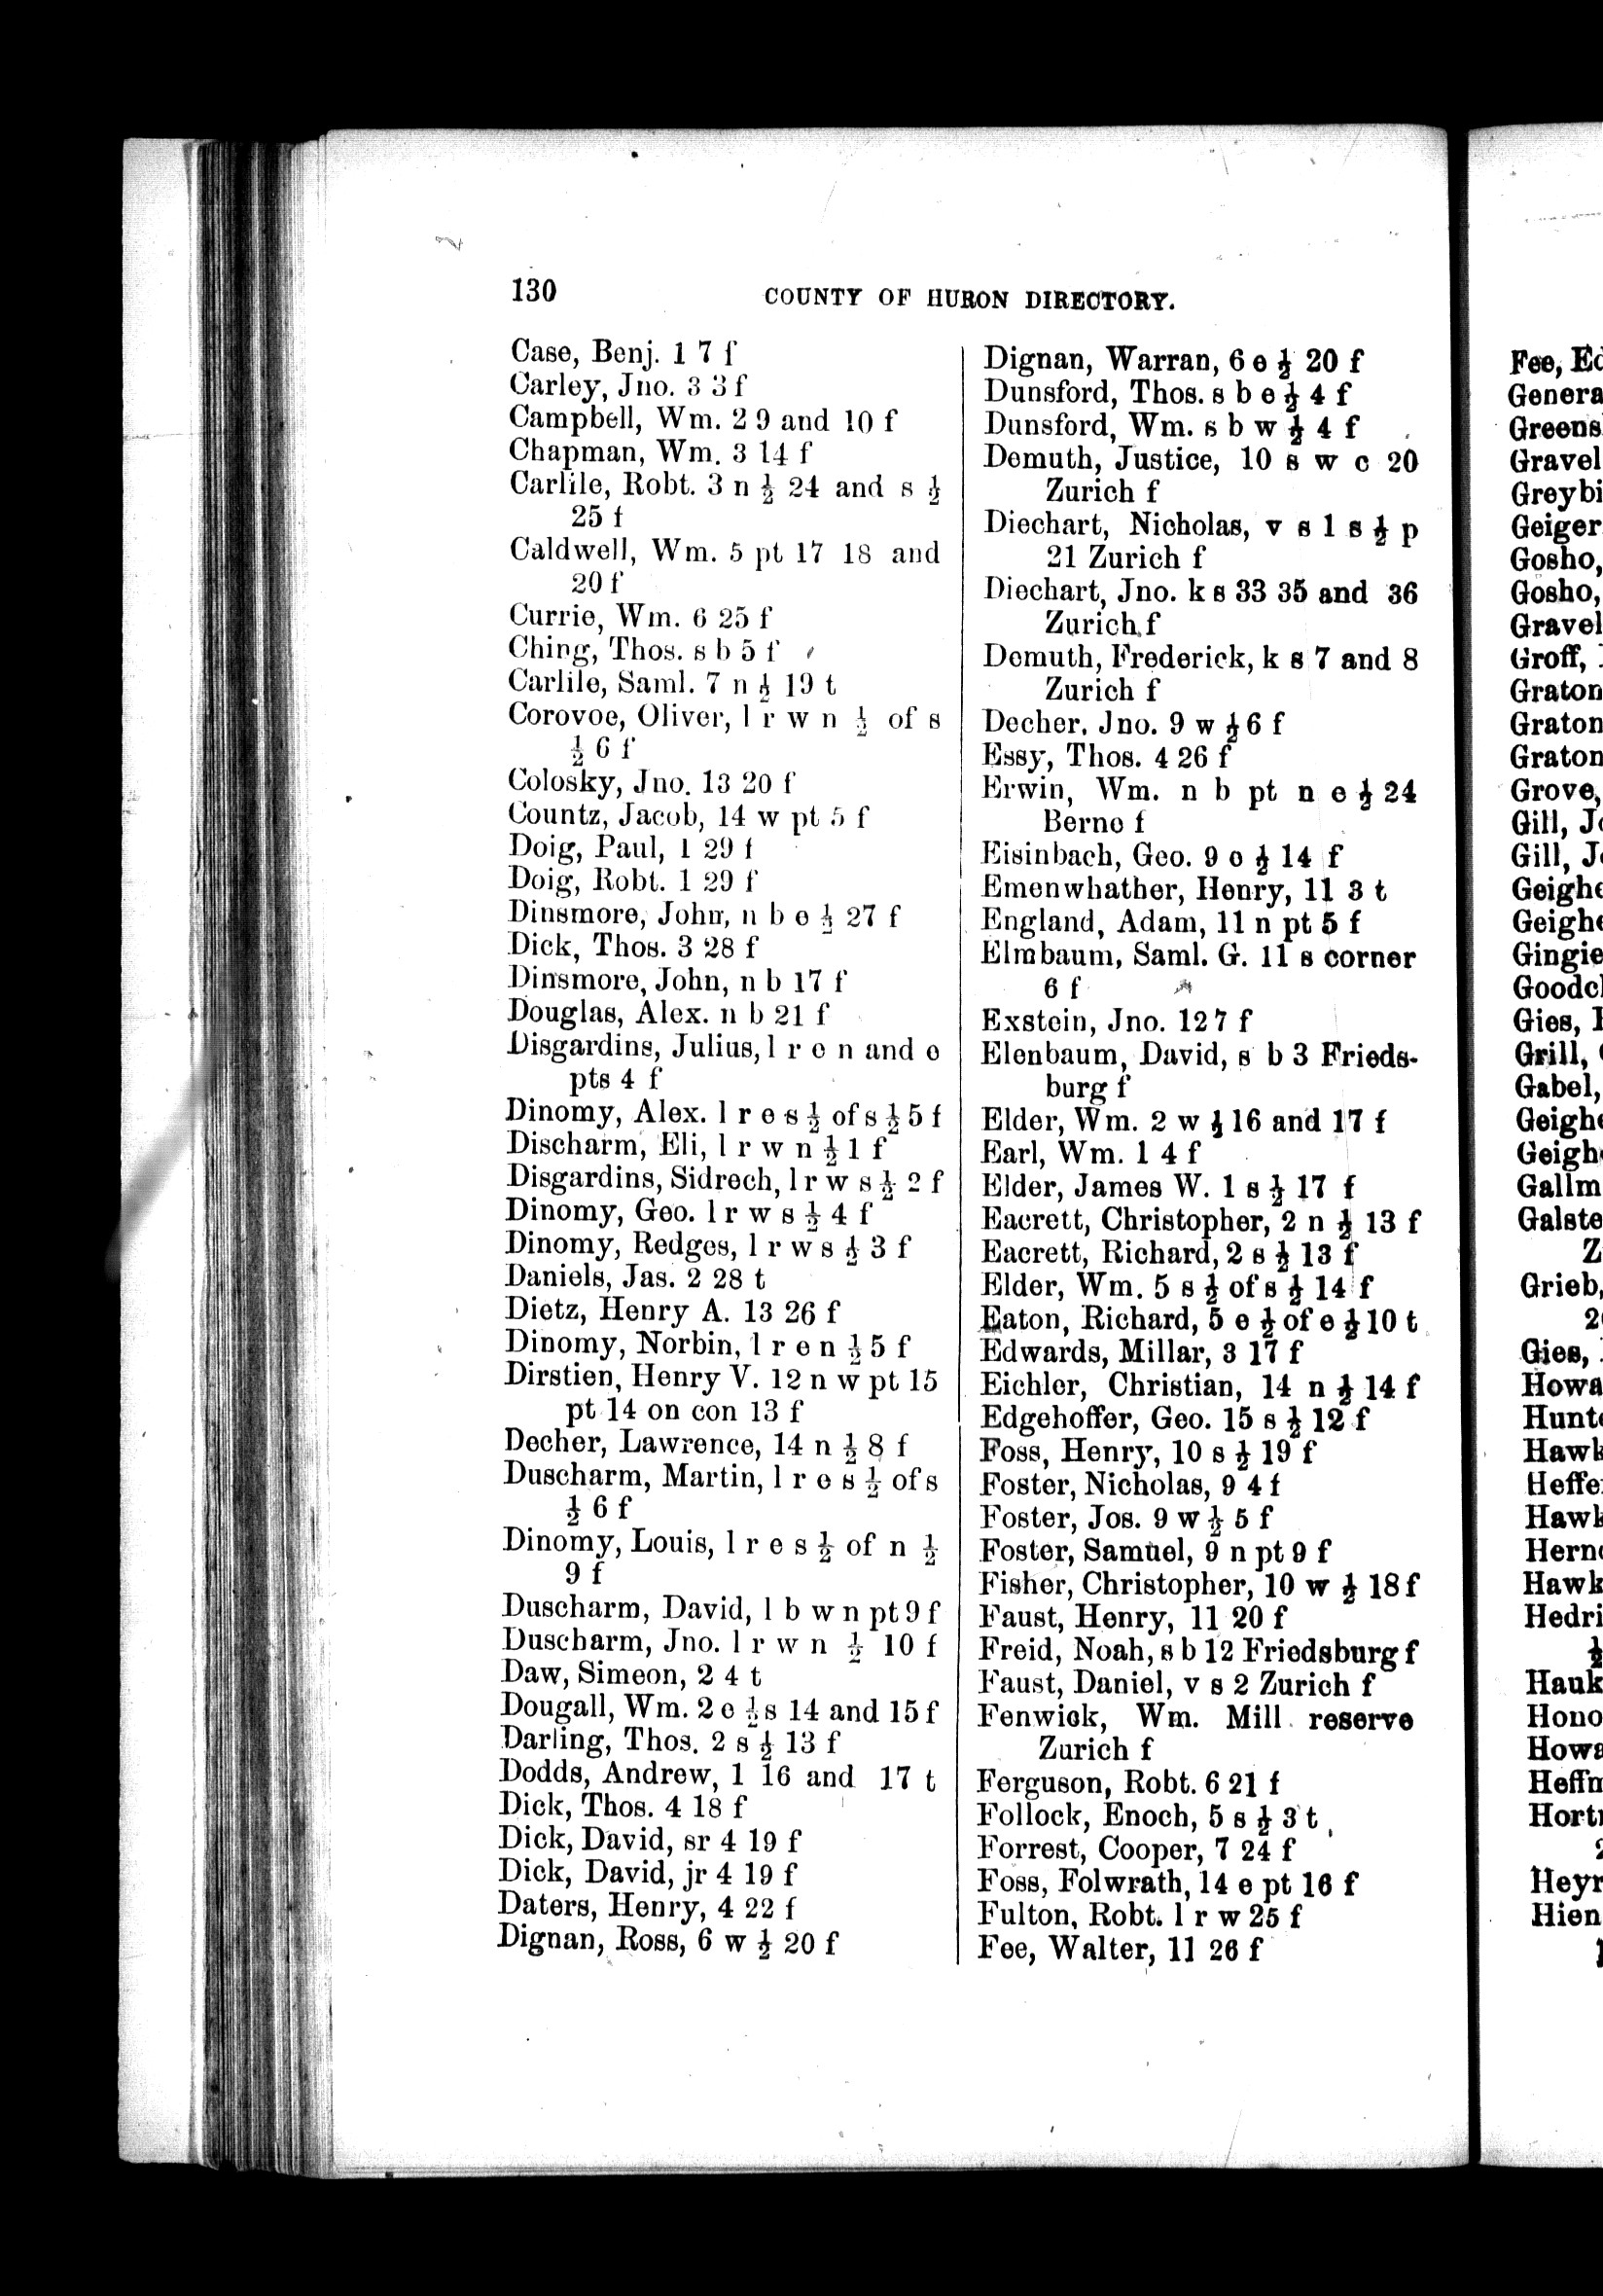 130
COUNTY OF HURON DIRECTORY.
Case, Benj. 1 7 f
Carley, Jno. 3 3 f
Campbell, Wm. 2 9 and 10 f
Chapman, Wm. 3 14 f
Carlile, Robt. 3 n ½ 24 and s ½
25 f
Caldwell, Wm. 5 pt 17 18 and
20 f
Currie, Wm. 6 25 f
Ching, Thos. s b 5 f
Carlile, Saml. 7 n ½ 19 t
Corovoe, Oliver, l r w n ½ of s
½ 6 f
Colosky, Jno. 13 20 f
Countz, Jacob, 14 w pt 5 f
Doig, Paul, 1 29 f
Doig, Robt. 1 29 f
Dinsmore, John, n b e ½ 27 f
Dick, Thos. 3 28 f
Dinsmore, John, n b 17 f
Douglas, Alex. n b 21 f
Disgardins, Julius, l r e n and e
pts 4 f
Dinomy, Alex. l r e s ½ of s ½ 5 f
Discharm, Eli, l r w n ½ 1 f
Disgardins, Sidrech, l r w s ½ 2 f
Dinomy, Geo. l r w s ½ 4 f
Dinomy, Redges, l r w s ½ 3 f
Daniels, Jas. 2 28 t
Dietz, Henry A. 13 26 f
Dinomy, Norbin, l r e n ½ 5 f
Dirstien, Henry V. 12 n w pt 15
pt 14 on con 13 f
Decher, Lawrence, 14 n ½ 8 f
Duscharm, Martin, l r e s ½ of s
½ 6 f
Dinomy, Louis, l r e s ½ of n ½
9 f
Duscharm, David, l b w n pt 9 f
Duscharm, Jno. l r w n ½ 10 f
Daw, Simeon, 2 4 t
Dougall, Wm. 2 e ½ s 14 and 15 f
Darling, Thos. 2 s ½ 13 f
Dodds, Andrew, 1 16 and 17 t
Dick, Thos. 4 18 f
Dick, David, sr 4 19 f
Dick, David, jr 4 19 f
Daters, Henry, 4 22 f
Dignan, Ross, 6 w ½ 20 f
Dignan, Warran, 6 e ½ 20 f
Dunsford, Thos. s b e ½ 4 f
Dunsford, Wm. s b w ½ 4 f
Demuth, Justice, 10 s w c 20
Zurich f
Diechart, Nicholas, v s 1 s ½ p
21 Zurich f
Diechart, Jno. k s 33 35 and 36
Zurich f
Demuth, Frederick, k s 7 and 8
Zurich f
Decher, Jno. 9 w ½ 6 f
Essy, Thos. 4 26 f
Erwin, Wm. n b pt n e ½ 24
Berne f
Eisinbach, Geo. 9 e ½ 14 f
Emenwhather, Henry, 11 3 t
England, Adam, 11 n pt 5 f
Elmbaum, Saml. G. 11 s corner
6 f
Exstein, Jno. 12 7 f
Elenbaum, David, s b 3 Frieds-
burg f
Elder, Wm. 2 w ½ 16 and 17 f
Earl, Wm. 1 4 f
Elder, James W. 1 s ½ 17 f
Eacrett, Christopher, 2 n ½ 13 f
Eacrett, Richard, 2 s ½ 13 f
Elder, Wm. 5 s ½ of s ½ 14 f
Eaton, Richard, 5 e ½ of e ½ 10 t
Edwards, Millar, 3 17 f
Eichler, Christian, 14 n ½ 14 f
Edgehoffer, Geo. 15 s ½ 12 f
Foss, Henry, 10 s ½ 19 f
Foster, Nicholas, 9 4 f
Foster, Jos. 9 w ½ 5 f
Foster, Samuel, 9 n pt 9 f
Fisher, Christopher, 10 w ½ 18 f
Faust, Henry, 11 20 f
Freid, Noah, s b 12 Friedsburg f
Faust, Daniel, v s 2 Zurich f
Fenwick, Wm. Mill reserve
Zurich f
Ferguson, Robt. 6 21 f
Follock, Enoch, 5 s ½ 3 t
Forrest, Cooper, 7 24 f
Foss, Folwrath, 14 e pt 16 f
Fulton, Robt. l r w 25 f
Fee, Walter, 11 26 f
Fee, Ed
Genera
Greens
Gravel
Greybi
Geiger
Gosho,
Gosho,
Gravel
Groff,
Graton
Graton
Graton
Grove,
Gill, J
Gill, J
Geighe
Geighe
Gingie
Goodcl
Gies,
Grill,
Gabel,
Geighe
Geigh
Gallm
Galste
Z
Grieb,
2
Gies,
Howa
Hunt
Hawk
Heffe
Hawk
Hern
Hawk
Hedri
½
Hauk
Hono
Howa
Heffm
Hort
Heyr
Hien